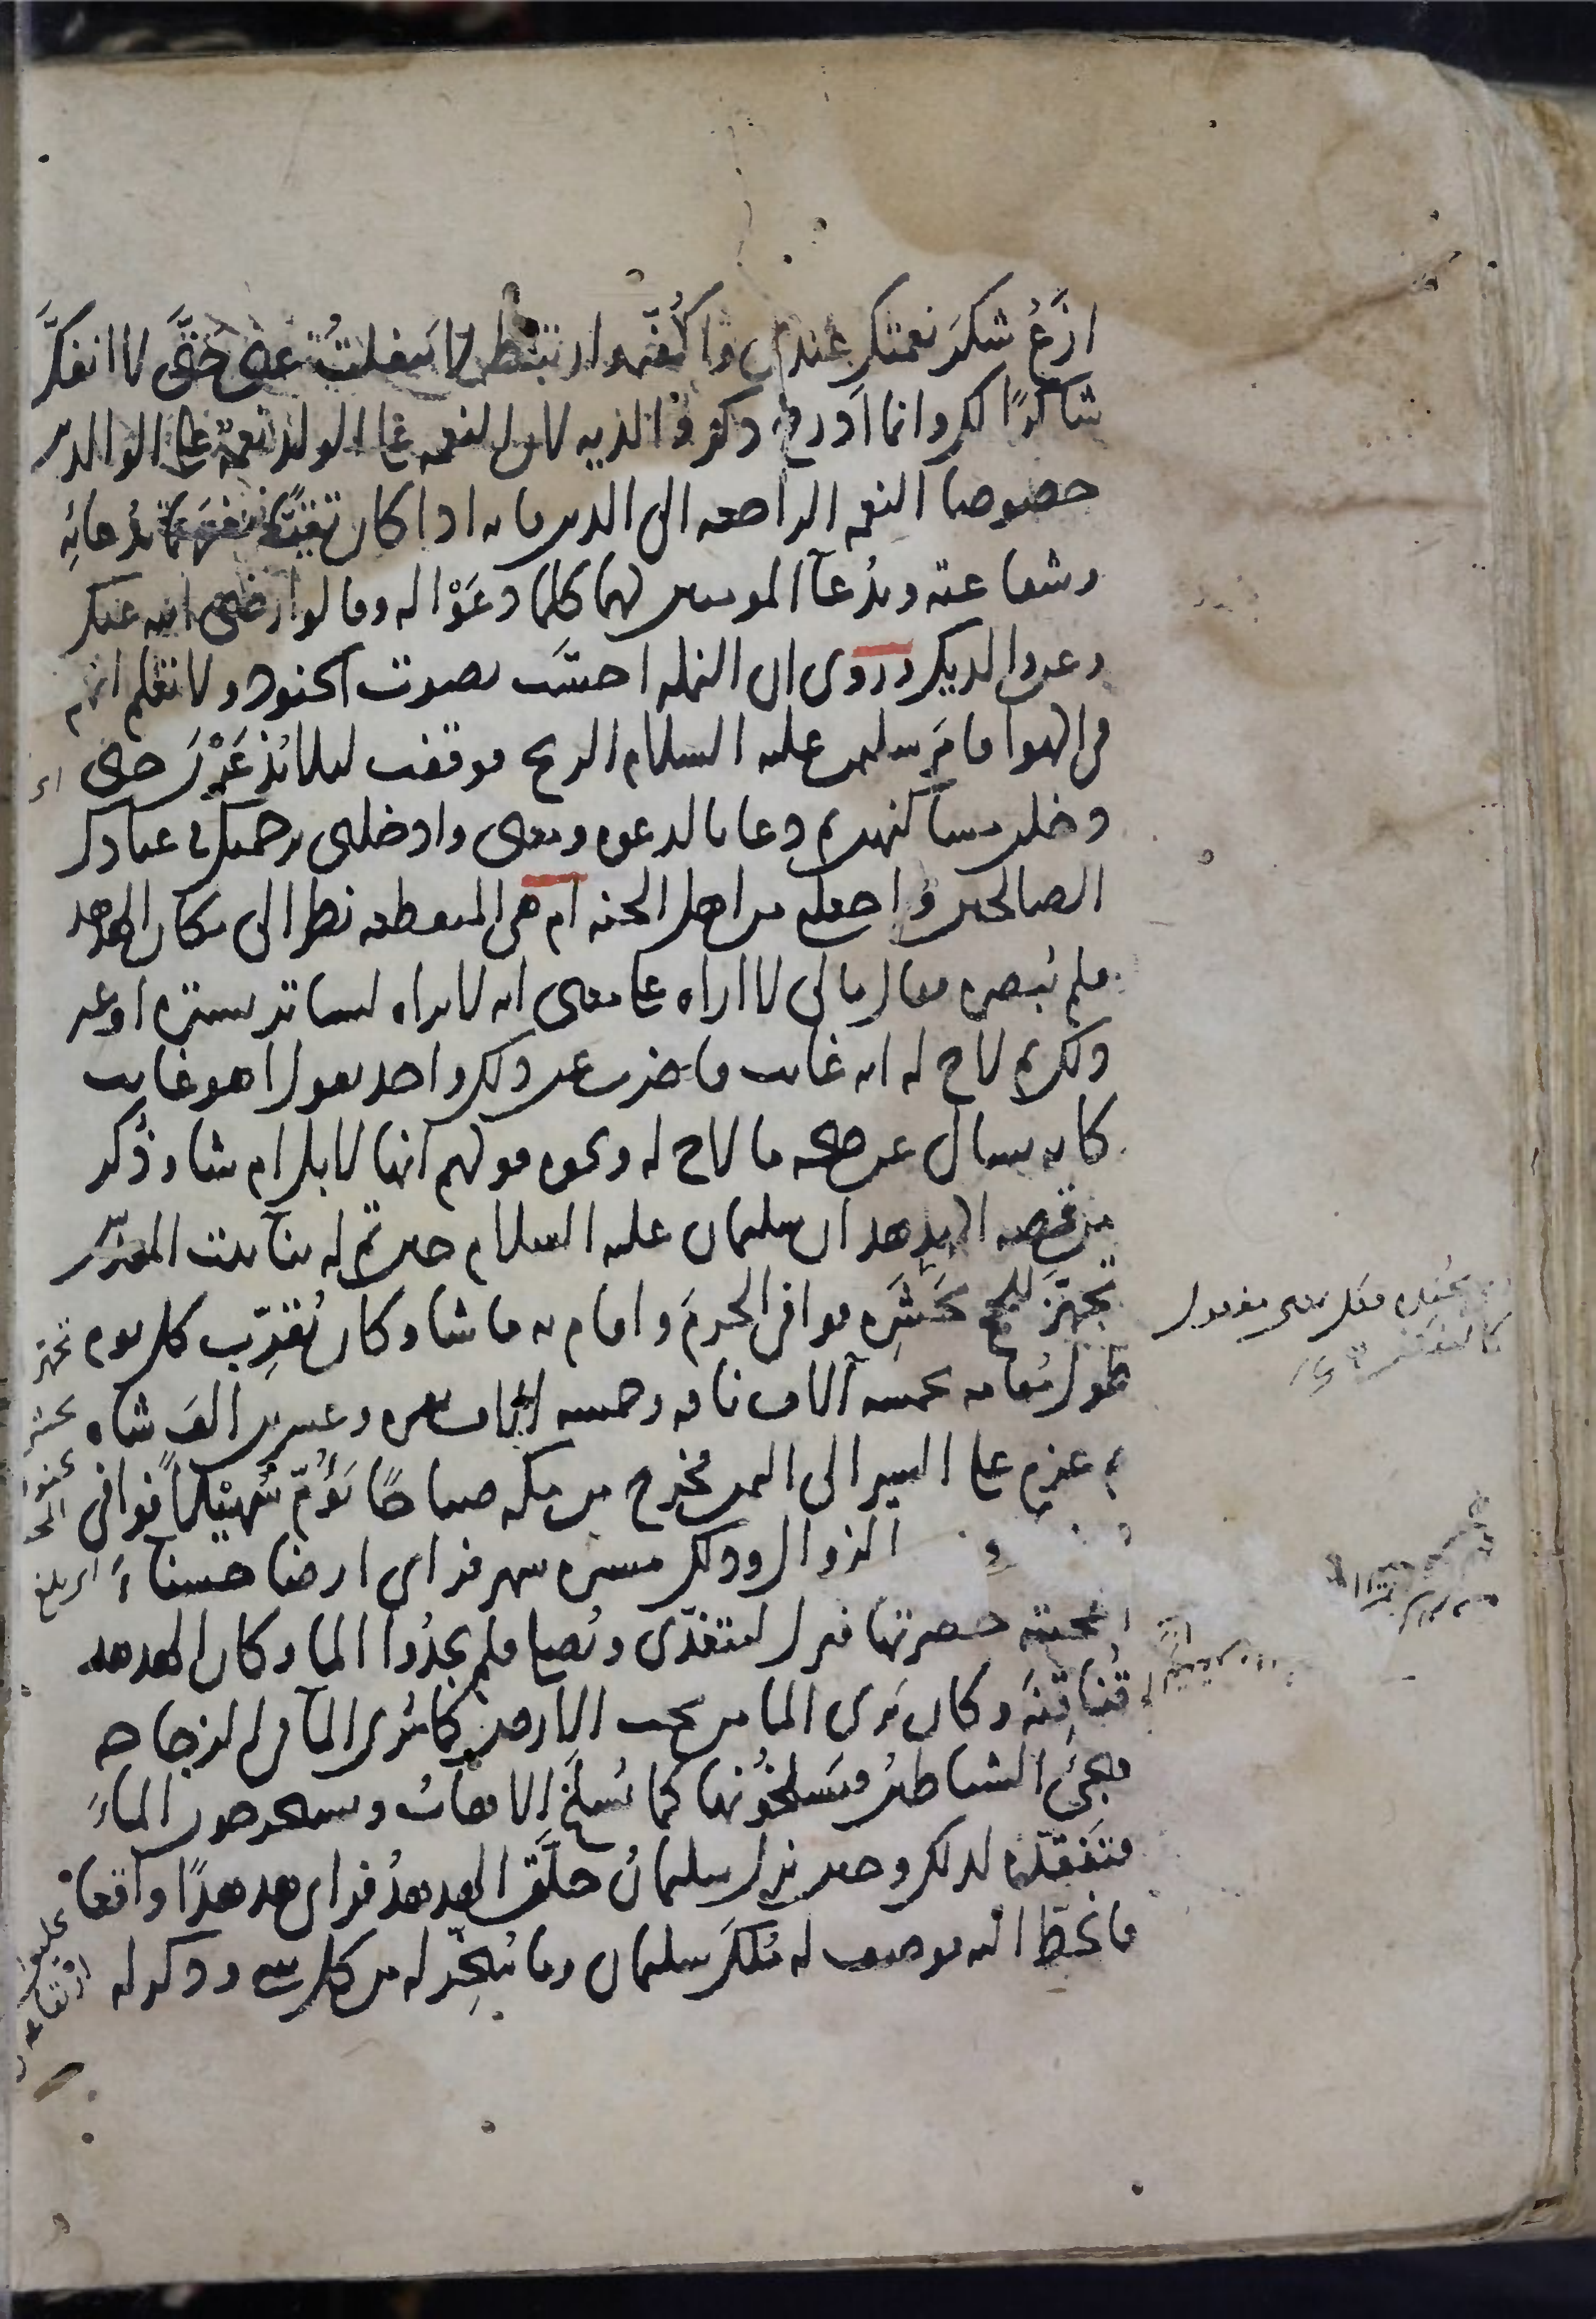 ازع شكر نعمتك عندي واكفه وارتبطه لا ينفلت عني حتى لا انفك
شاكرا لك وانما ادرج ذكر والديه لان النعمة على الولد نعمة على الوالدين
خصوصا النعمة الراجعة الى الدين فانه اذا كان تقيا نفعهما بدعائه
وشفاعته وبدعاء المومنين لهما كلما دعوا له وقالوا رضي الله عنك
وعن والديك وروى ان النملة احست بصوت الجنود ولا تعلم انهم
في الهوا فامر سليمن عليه السلام الريح فوقفت ليلا يذعرن حتى
دخلن مساكنهن ثم دعا بالدعوة ومعنى وادخلني برحمتك في عبادك
الصالحين واجعلني من اهل الجنة ام هي المنقطعة نظر الى مكان الهدهد
فلم يبصره فقال ما لي لا اراه على معنى انه لا يراه لساتر ستره او غير
ذلك ثم لاح له انه غايب فاضرب عن ذلك واخذ يقول اهو غايب
كانه يسال عن صحة ما لاح له ونحوه قولهم انها لابل ام شاء وذكر
من قصة الهدهد ان سليمان عليه السلام حين تم له بناء بيت المقدس
تجهز للحج بحشره فوافى الحرم واقام به ما شاء وكان يقرب كل يوم
طول مقامه بخمسة آلاف ناقة وخمسة الاف بقرة وعشرين الف شاة
ثم عزم على السير الى اليمن فخرج من مكة صباحا يؤم سهيلا فوافى
الزوال وذلك مسيرة شهر فراى ارضا حسناء
اعجبته خضرتها فنزل ليتغدى ويصلي فلم يجدوا الما وكان الهدهد
قناقنه وكان يرى الما من تحت الارض كما يرى الماء في الزجاجة
فيجيء الشياطين فيسلخونها كما يسلخ الاهاب ويستخرجون الماء
فتفقده لذلك وحين نزل سليمان حلق الهدهد فراى هدهدا واقعا
فانحط اليه فوصف له ملك سليمان وما سخر له من كل شي وذكر له